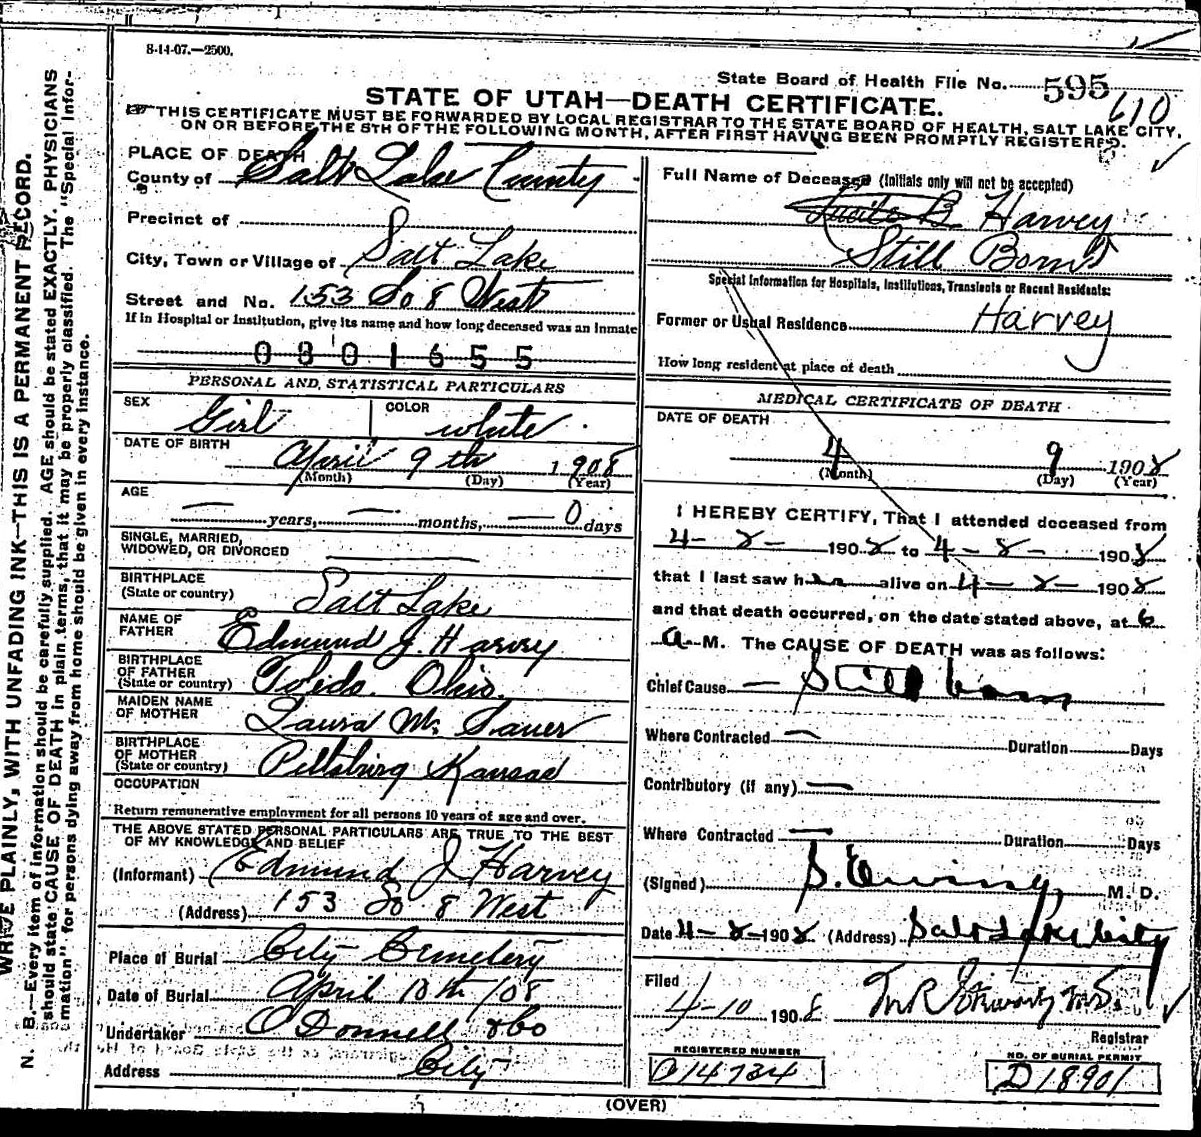 8-14-07.—2500.
State Board of Health File No. 595
610
STATE OF UTAH—DEATH CERTIFICATE.
☞ THIS CERTIFICATE MUST BE FORWARDED BY LOCAL REGISTRAR TO THE STATE BOARD OF HEALTH, SALT LAKE CITY,
ON OR BEFORE THE 5TH OF THE FOLLOWING MONTH, AFTER FIRST HAVING BEEN PROMPTLY REGISTERED.
WRITE PLAINLY, WITH UNFADING INK—THIS IS A PERMANENT RECORD.
N. B.—Every item of information should be carefully supplied. AGE should be stated EXACTLY. PHYSICIANS
should state CAUSE OF DEATH in plain terms, that it may be properly classified. The "Special Infor-
mation" for persons dying away from home should be given in every instance.
PLACE OF DEATH
County of Salt Lake County
Precinct of
City, Town or Village of Salt Lake
Street and No. 153 So 8 West
If in Hospital or Institution, give its name and how long deceased was an inmate
0801655
PERSONAL AND STATISTICAL PARTICULARS
SEX Girl COLOR white
DATE OF BIRTH April 9th 1908
(Month) (Day) (Year)
AGE — years, — months, — 0 days
SINGLE, MARRIED,
WIDOWED, OR DIVORCED
BIRTHPLACE
(State or country) Salt Lake
NAME OF
FATHER Edmund J. Harvey
BIRTHPLACE
OF FATHER
(State or country) Toledo. Ohio.
MAIDEN NAME
OF MOTHER Laura M. Sauer
BIRTHPLACE
OF MOTHER
(State or country) Pittsburg Kansas
OCCUPATION
Return remunerative employment for all persons 10 years of age and over.
THE ABOVE STATED PERSONAL PARTICULARS ARE TRUE TO THE BEST
OF MY KNOWLEDGE AND BELIEF
(Informant) Edmund J Harvey
(Address) 153 So 8 West
Place of Burial City Cemetery
Date of Burial April 10th /08
Undertaker O'Donnell & Co
Address City
Full Name of Deceased (Initials only will not be accepted)
Lucile B Harvey
Still Born
Special Information for Hospitals, Institutions, Transients or Recent Residents:
Former or Usual Residence Harvey
How long resident at place of death
MEDICAL CERTIFICATE OF DEATH
DATE OF DEATH
4 9 1908
(Month) (Day) (Year)
I HEREBY CERTIFY, That I attended deceased from
4- 8- 1908 to 4- 8- 1908
that I last saw her alive on 4- 8- 1908
and that death occurred, on the date stated above, at 6
a M. The CAUSE OF DEATH was as follows:
Chief Cause — Still born
Where Contracted — Duration Days
Contributory (if any) —
Where Contracted — Duration Days
(Signed) S. Ewing, M. D.
Date 4-8-1908 (Address) Salt Lake City
Filed
4-10 1908
Registrar
REGISTERED NUMBER
D14734
NO. OF BURIAL PERMIT
D18901
(OVER)